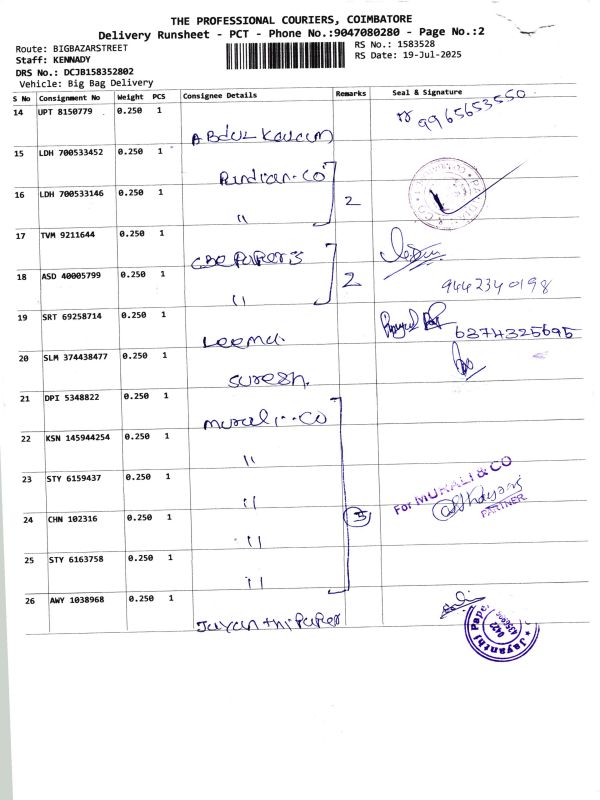 THE PROFESSIONAL COURIERS, COIMBATORE
Delivery Runsheet - PCT - Phone No.:9047080280 - Page No.:2
Route: BIGBAZARSTREET
Staff: KENNADY
DRS No.: DCJB158352802
Vehicle: Big Bag Delivery
RS No.: 1583528
RS Date: 19-Jul-2025
S No Consignment No Weight PCS Consignee Details Remarks Seal & Signature
14 UPT 8150779 0.250 1 ABdul Kalaam 9965653550
15 LDH 700533452 0.250 1 Rindian.Co
16 LDH 700533146 0.250 1 " 2
17 TVM 9211644 0.250 1 CBE PaPeRs
18 ASD 40005799 0.250 1 " 2 9442340198
19 SRT 69258714 0.250 1 Leema. 6374325695
20 SLM 374438477 0.250 1 Suresh.
21 DPI 5348822 0.250 1 murali..Co
22 KSN 145944254 0.250 1 "
23 STY 6159437 0.250 1 " For MURALI & CO
24 CHN 102316 0.250 1 " 5 PARTNER
25 STY 6163758 0.250 1 "
26 AWY 1038968 0.250 1 Jayanthi PaPer
Jayanthi Pape
0422